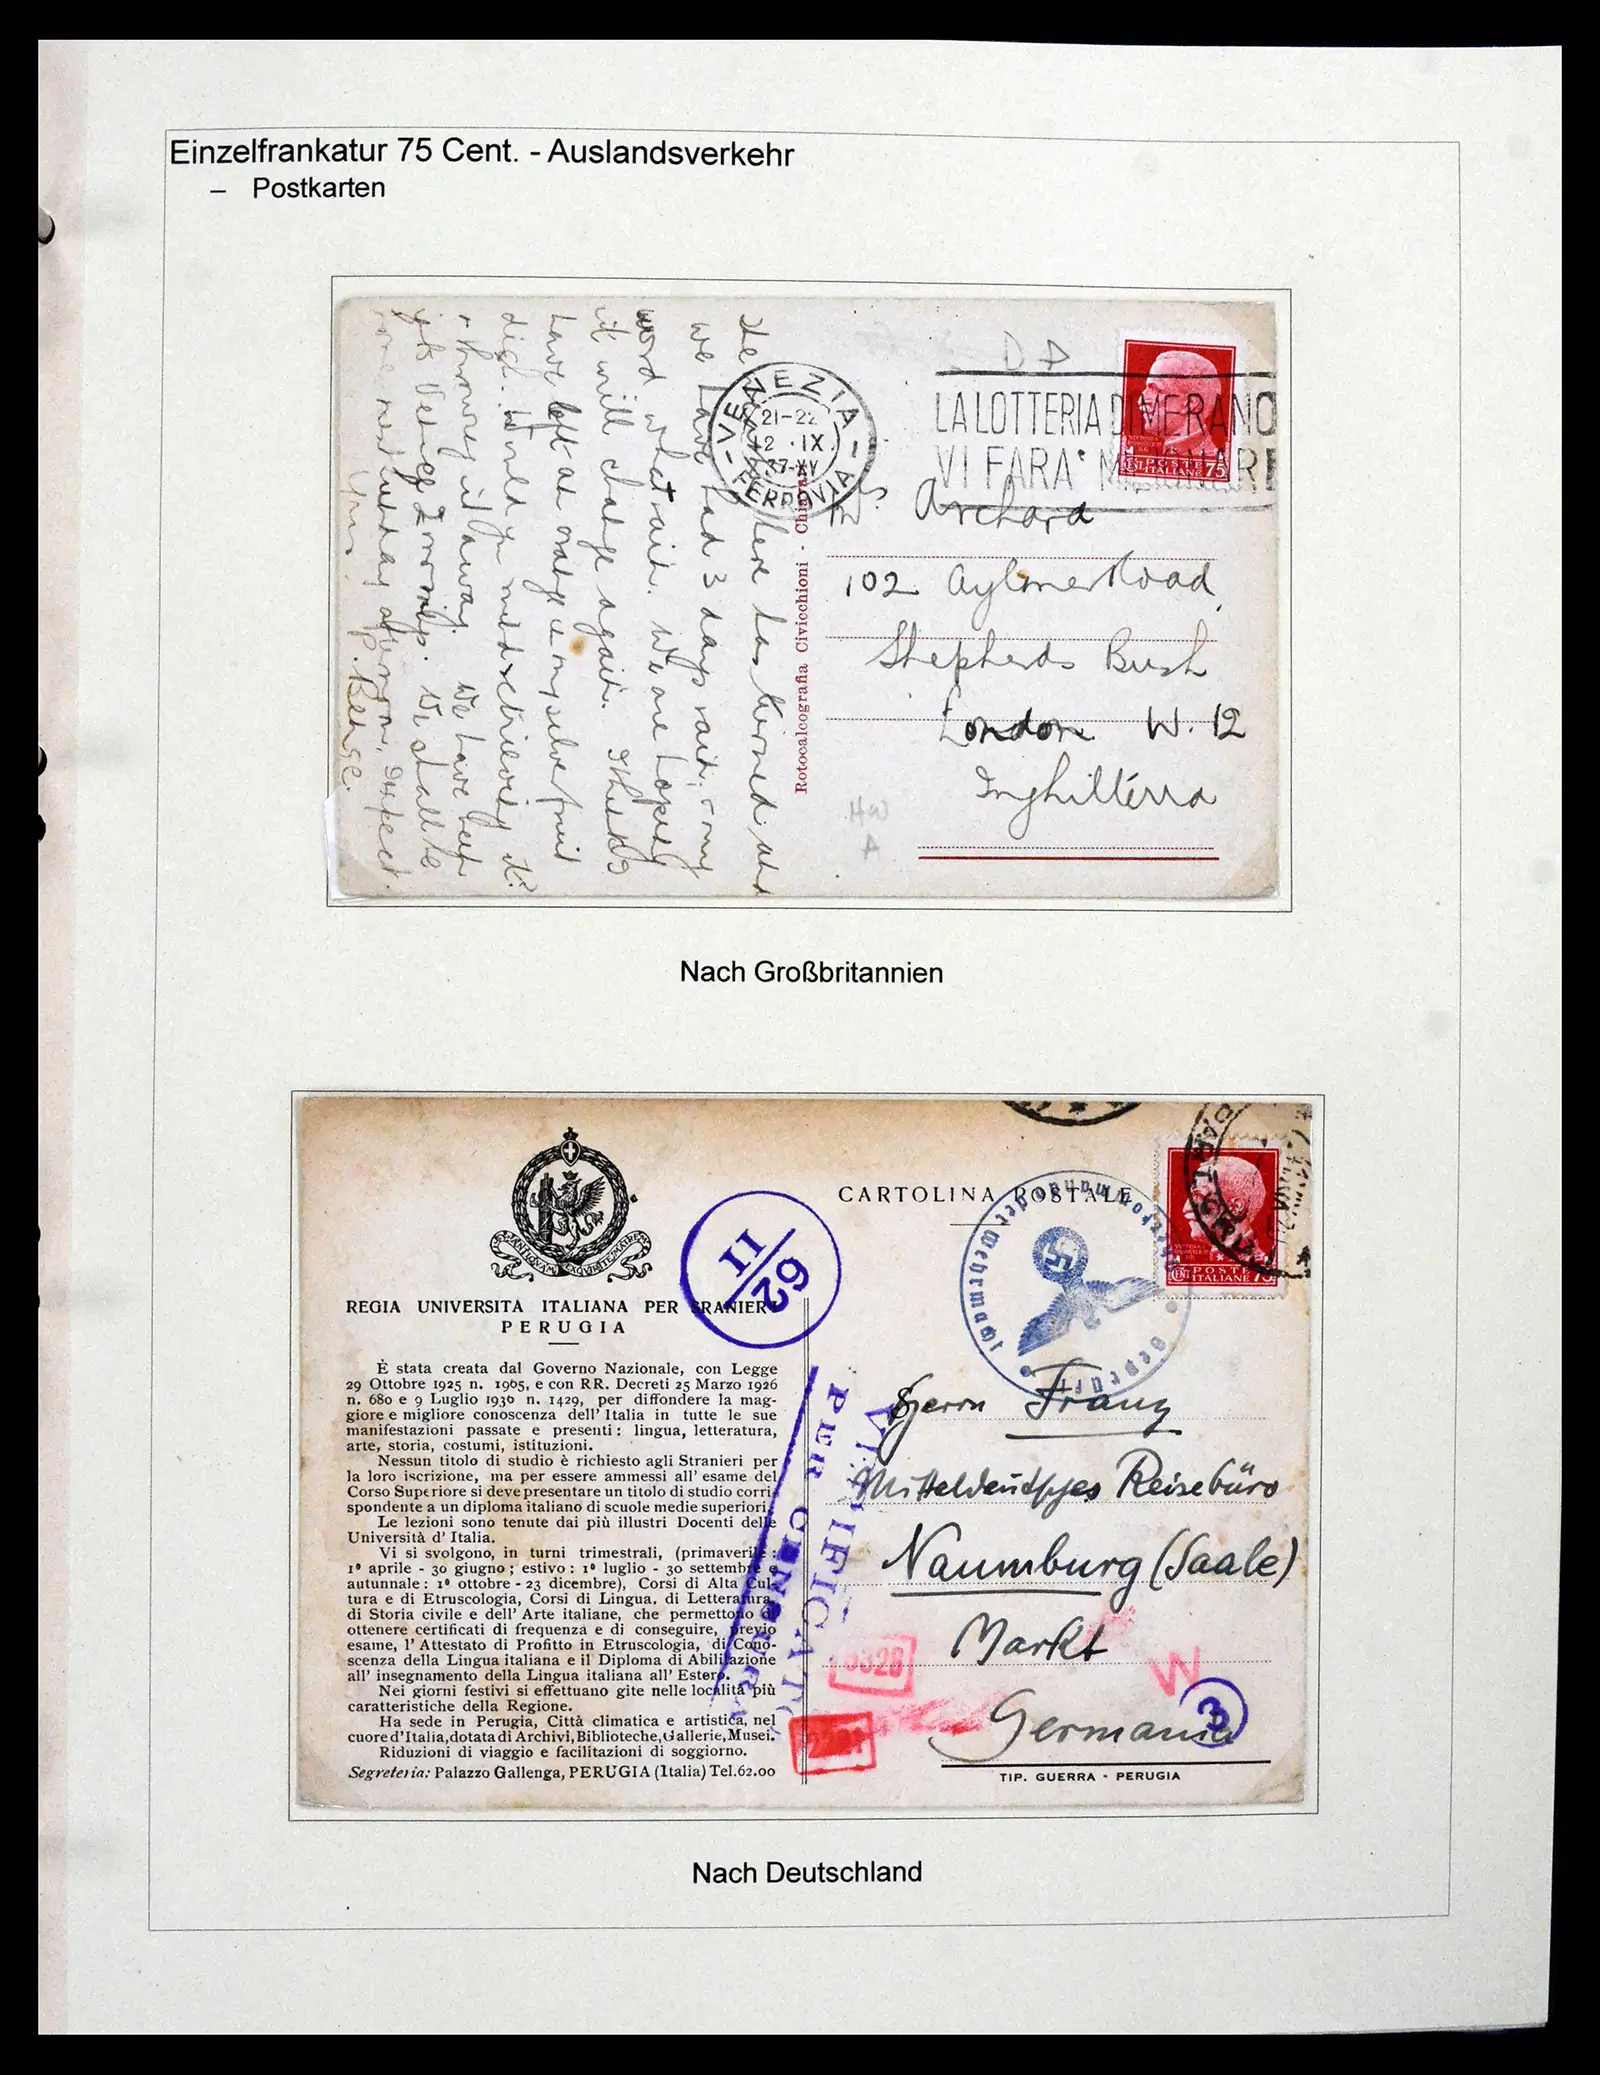 Einzelfrankatur 75 Cent. - Auslandsverkehr
– Postkarten
The weather here has turned, and
we have had 3 days rain, - my
word what rain. We are hoping
it will change again.
have left at
did. Would you mind retrieving it
throwing it away. We have been
We shall be
next Sunday afternoon, I expect.
VENEZIA
21-22
2 · IX
37-XV
FERROVIA
LA LOTTERIA DI MERANO
VI FARA'
POSTE
CENT ITALIANE 75
Archard
102 Aylmer Road
Shepherds Bush
London W. 12
Inghilterra
Rotocalcografia Civicchioni - Chiavari
Nach Großbritannien
REGIA UNIVERSITA ITALIANA PER SRANIERI
PERUGIA
È stata creata dal Governo Nazionale, con Legge
29 Ottobre 1925 n. 1965, e con RR. Decreti 25 Marzo 1926
n. 680 e 9 Luglio 1930 n. 1429, per diffondere la mag-
giore e migliore conoscenza dell' Italia in tutte le sue
manifestazioni passate e presenti: lingua, letteratura,
arte, storia, costumi, istituzioni.
Nessun titolo di studio è richiesto agli Stranieri per
la loro iscrizione, ma per essere ammessi all' esame del
Corso Superiore si deve presentare un titolo di studio corri
spondente a un diploma italiano di scuole medie superiori.
Le lezioni sono tenute dai più illustri Docenti delle
Università d' Italia.
Vi si svolgono, in turni trimestrali, (primaverile:
1º aprile - 30 giugno; estivo: 1º luglio - 30 settembre e
autunnale: 1º ottobre - 23 dicembre), Corsi di Alta Cul-
tura e di Etruscologia, Corsi di Lingua, di Letteratura,
di Storia civile e dell' Arte italiane, che permettono di
ottenere certificati di frequenza e di conseguire, previo
esame, l' Attestato di Profitto in Etruscologia, di Cono-
scenza della Lingua italiana e il Diploma di Abilitazione
all' insegnamento della Lingua italiana all' Estero.
Nei giorni festivi si effettuano gite nelle località più
caratteristiche della Regione.
Ha sede in Perugia, Città climatica e artistica, nel
cuore d'Italia, dotata di Archivi, Biblioteche, Gallerie, Musei.
Riduzioni di viaggio e facilitazioni di soggiorno.
Segreteria: Palazzo Gallenga, PERUGIA (Italia) Tel. 62.00
62
II
VERIFICATO
PER CENSURA
CARTOLINA POSTALE
Oberkommando der Wehrmacht
Geprüft
POSTE
CENT ITALIANE 75
Herrn Franz
Mitteldeutsches Reisebüro
Naumburg (Saale)
Markt
Germania
W
3
TIP. GUERRA - PERUGIA
Nach Deutschland